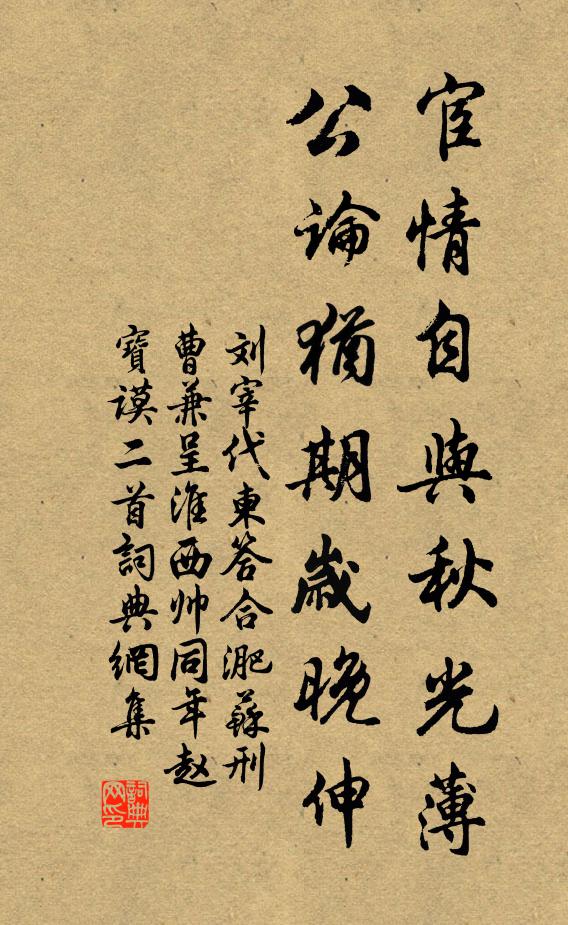 宦情自與秋光薄
公論猶期歲晚伸
刘宰代柬答合淝蘇刑
曹兼呈淮西帅同年赵
寶謨二首詞典網集
詞典
网印